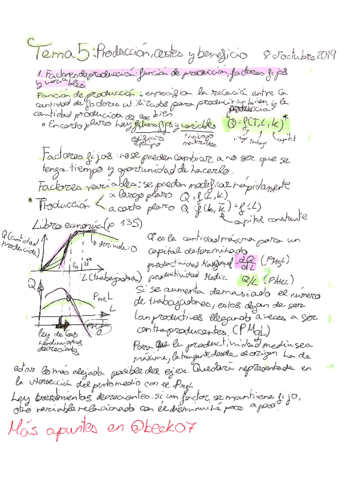 Tema 5: Producción, costes y beneficio 8 octubre 2019
1. Factores de producción: función de producción, factores fijos
y variables
Función de producción: especifica la relación entre la
cantidad de factores utilizados para producir un bien y la
cantidad producida de ese bien
producción
• En corto plazo hay fijos y variables Q = f(T, L, K)
trabajo capital
Factores fijos: no se pueden cambiar a no ser que se
tenga tiempo y oportunidad de hacerlo.
Factores variables: se pueden modificar rápidamente
* Producción < a largo plazo Q = f(L, K)
a corto plazo Q = f(L, K) = f(L)
capital constante
Libro (p 135)
Q (cantidad
producida)
derivada = 0
L (trabajadores)
Q es la cantidad máxima para un
capital determinado
productividad Marginal dQ/dL (PMgL)
productividad Media Q/L (PMeL)
Q
PMeL
PMgL
L
ley de los
rendimientos
decrecientes
Si se aumenta demasiado el número
de trabajadores, estos dejan de ser
tan productivos llegando a veces a ser
contraproducentes (PMgL)
Para que la productividad media sea
máxima, la tangente desde el origen ha de
estar lo más alejada posible del eje x. Quedaría representada en
la intersección del punto medio con el PMgL
Ley rendimientos decrecientes: si un factor se mantiene fijo,
otro variable relacionado con él disminuirá poco a poco
Más apuntes en @beck07